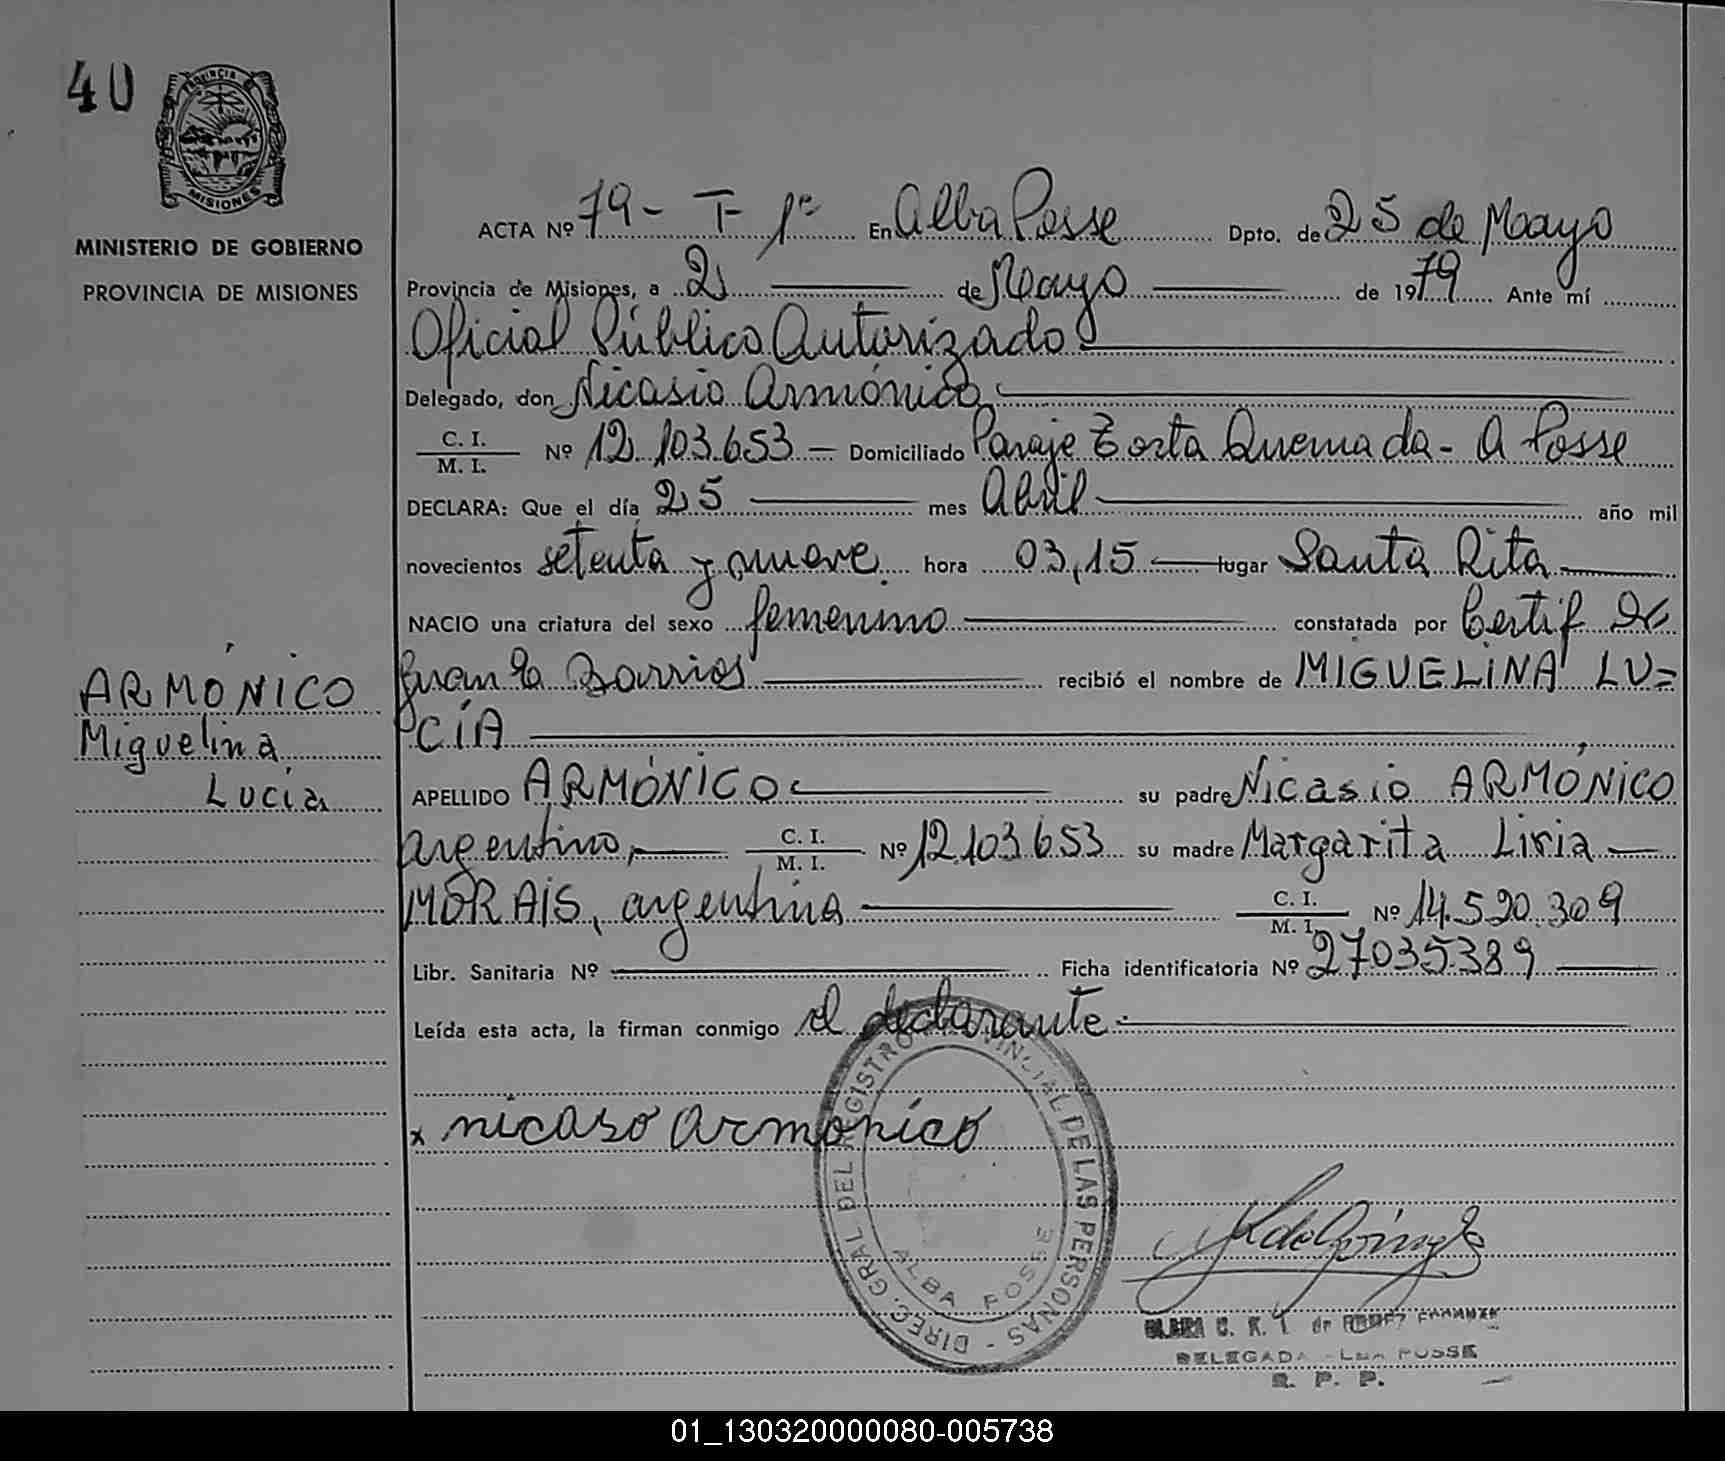 40
PROVINCIA
MISIONES
MINISTERIO DE GOBIERNO
PROVINCIA DE MISIONES
ARMÓNICO
Miguelina
Lucía
ACTA Nº 79 - T- 1º En Alba Posse Dpto. de 25 de Mayo
Provincia de Misiones, a 2 de Mayo de 1979 Ante mí
Oficial Público Autorizado
Delegado, don Nicasio Armónico
C. I. / M. I. Nº 12.103.653 - Domiciliado Paraje Torta Quemada - A Posse
DECLARA: Que el día 25 mes Abril año mil
novecientos setenta y nueve hora 03,15 lugar Santa Rita
NACIO una criatura del sexo femenino constatada por Certif
Barrios recibió el nombre de MIGUELINA LU=
CÍA
APELLIDO ARMÓNICO su padre Nicasio ARMÓNICO
argentino, C. I. / M. I. Nº 12.103.653 su madre Margarita Liria
MORAIS, argentina C. I. / M. I. Nº 14.520.309
Libr. Sanitaria Nº Ficha identificatoria Nº 27035389
Leída esta acta, la firman conmigo el declarante
x nicaso armonico
DIREC. GRAL DEL REGISTRO PROVINCIAL DE LAS PERSONAS -
ALBA POSSE
DELEGADA ALBA POSSE
R. P. P.
01_130320000080-005738